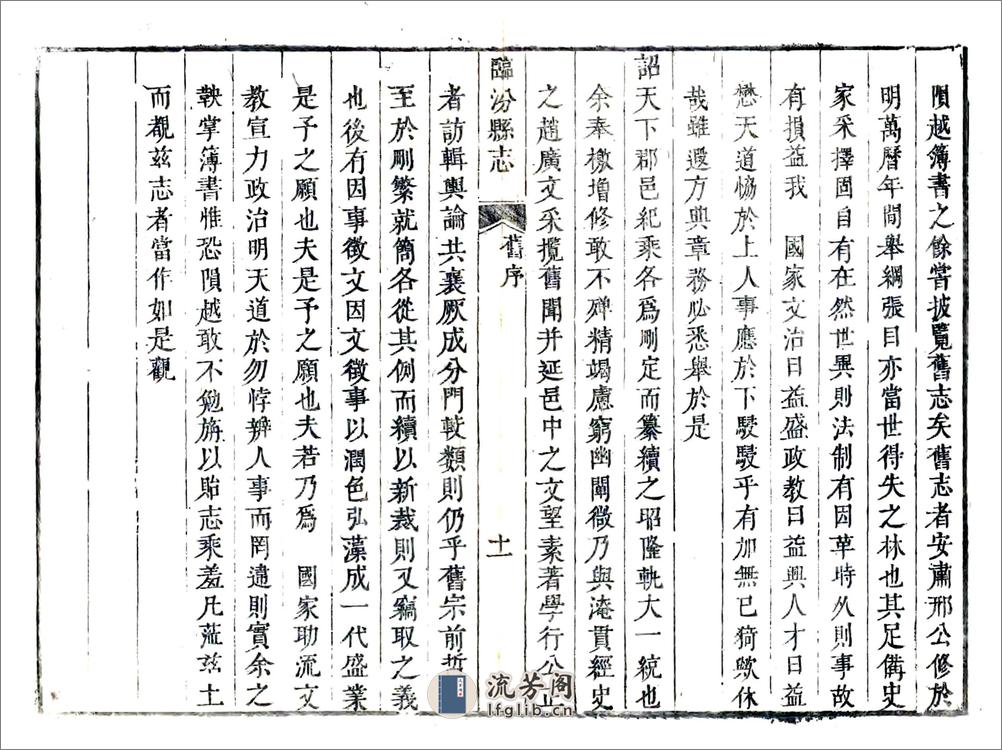 隕越簿書之餘嘗披覽舊志矣舊志者安肅邢公修於
明萬曆年間舉綱張目亦當世得失之林也其足備史
家采擇固自有在然世異則法制有因革時久則事故
有損益我 國家文治日益盛政教日益興人才日益
懋天道恊於上人事應於下駸駸乎有加無已猗歟休
哉雖遐方典章務必悉舉於是
詔天下郡邑紀乘各為刪定而纂續之昭隆軌大一統也
余奉檄增修敢不殫精竭慮窮幽闡微乃與淹貫經史
之趙廣文采攬舊聞并延邑中之文望素著學行公正
臨汾縣志 舊序 十一
者訪輯輿論共襄厥成分門較類則仍乎舊宗前哲
至於刪繁就簡各從其例而續以新裁則又竊取之義
也後有因事徵文因文徵事以潤色弘藻成一代盛業
是予之願也夫是予之願也夫若乃為 國家助流文
教宣力政治明天道於勿悖辨人事而罔違則實余之
鞅掌簿書惟恐隕越敢不勉旃以貽志乘羞凡蒞茲土
而覩茲志者當作如是觀
流芳阁
lfglib.cn